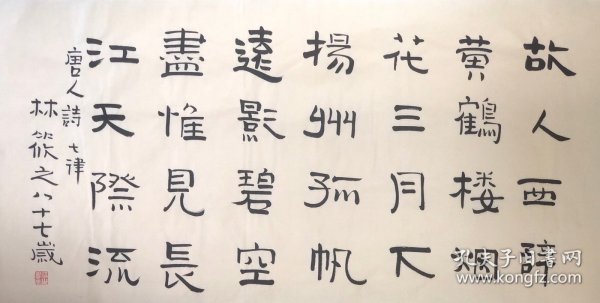 故人西辞
黄鶴楼烟
花三月下
揚州孤帆
遠影碧空
盡惟見長
江天際流
唐人詩七律
林筱之八十七歲
孔夫子旧书网
kongfz.com